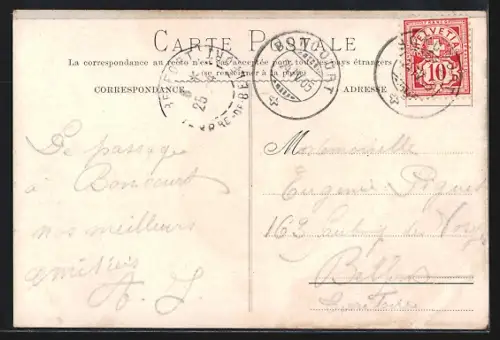 CARTE POSTALE
La correspondance au recto n'est pas acceptée pour tous les pays étrangers
(se renseigner à la poste)
CORRESPONDANCE
ADRESSE
BONCOURT
05
25
HELVETIA
10
De passage
à Boncourt
nos meilleurs
amitiés
A. J.
Mademoiselle
Eugénie
163 Faubourg des Vosges
Belfort